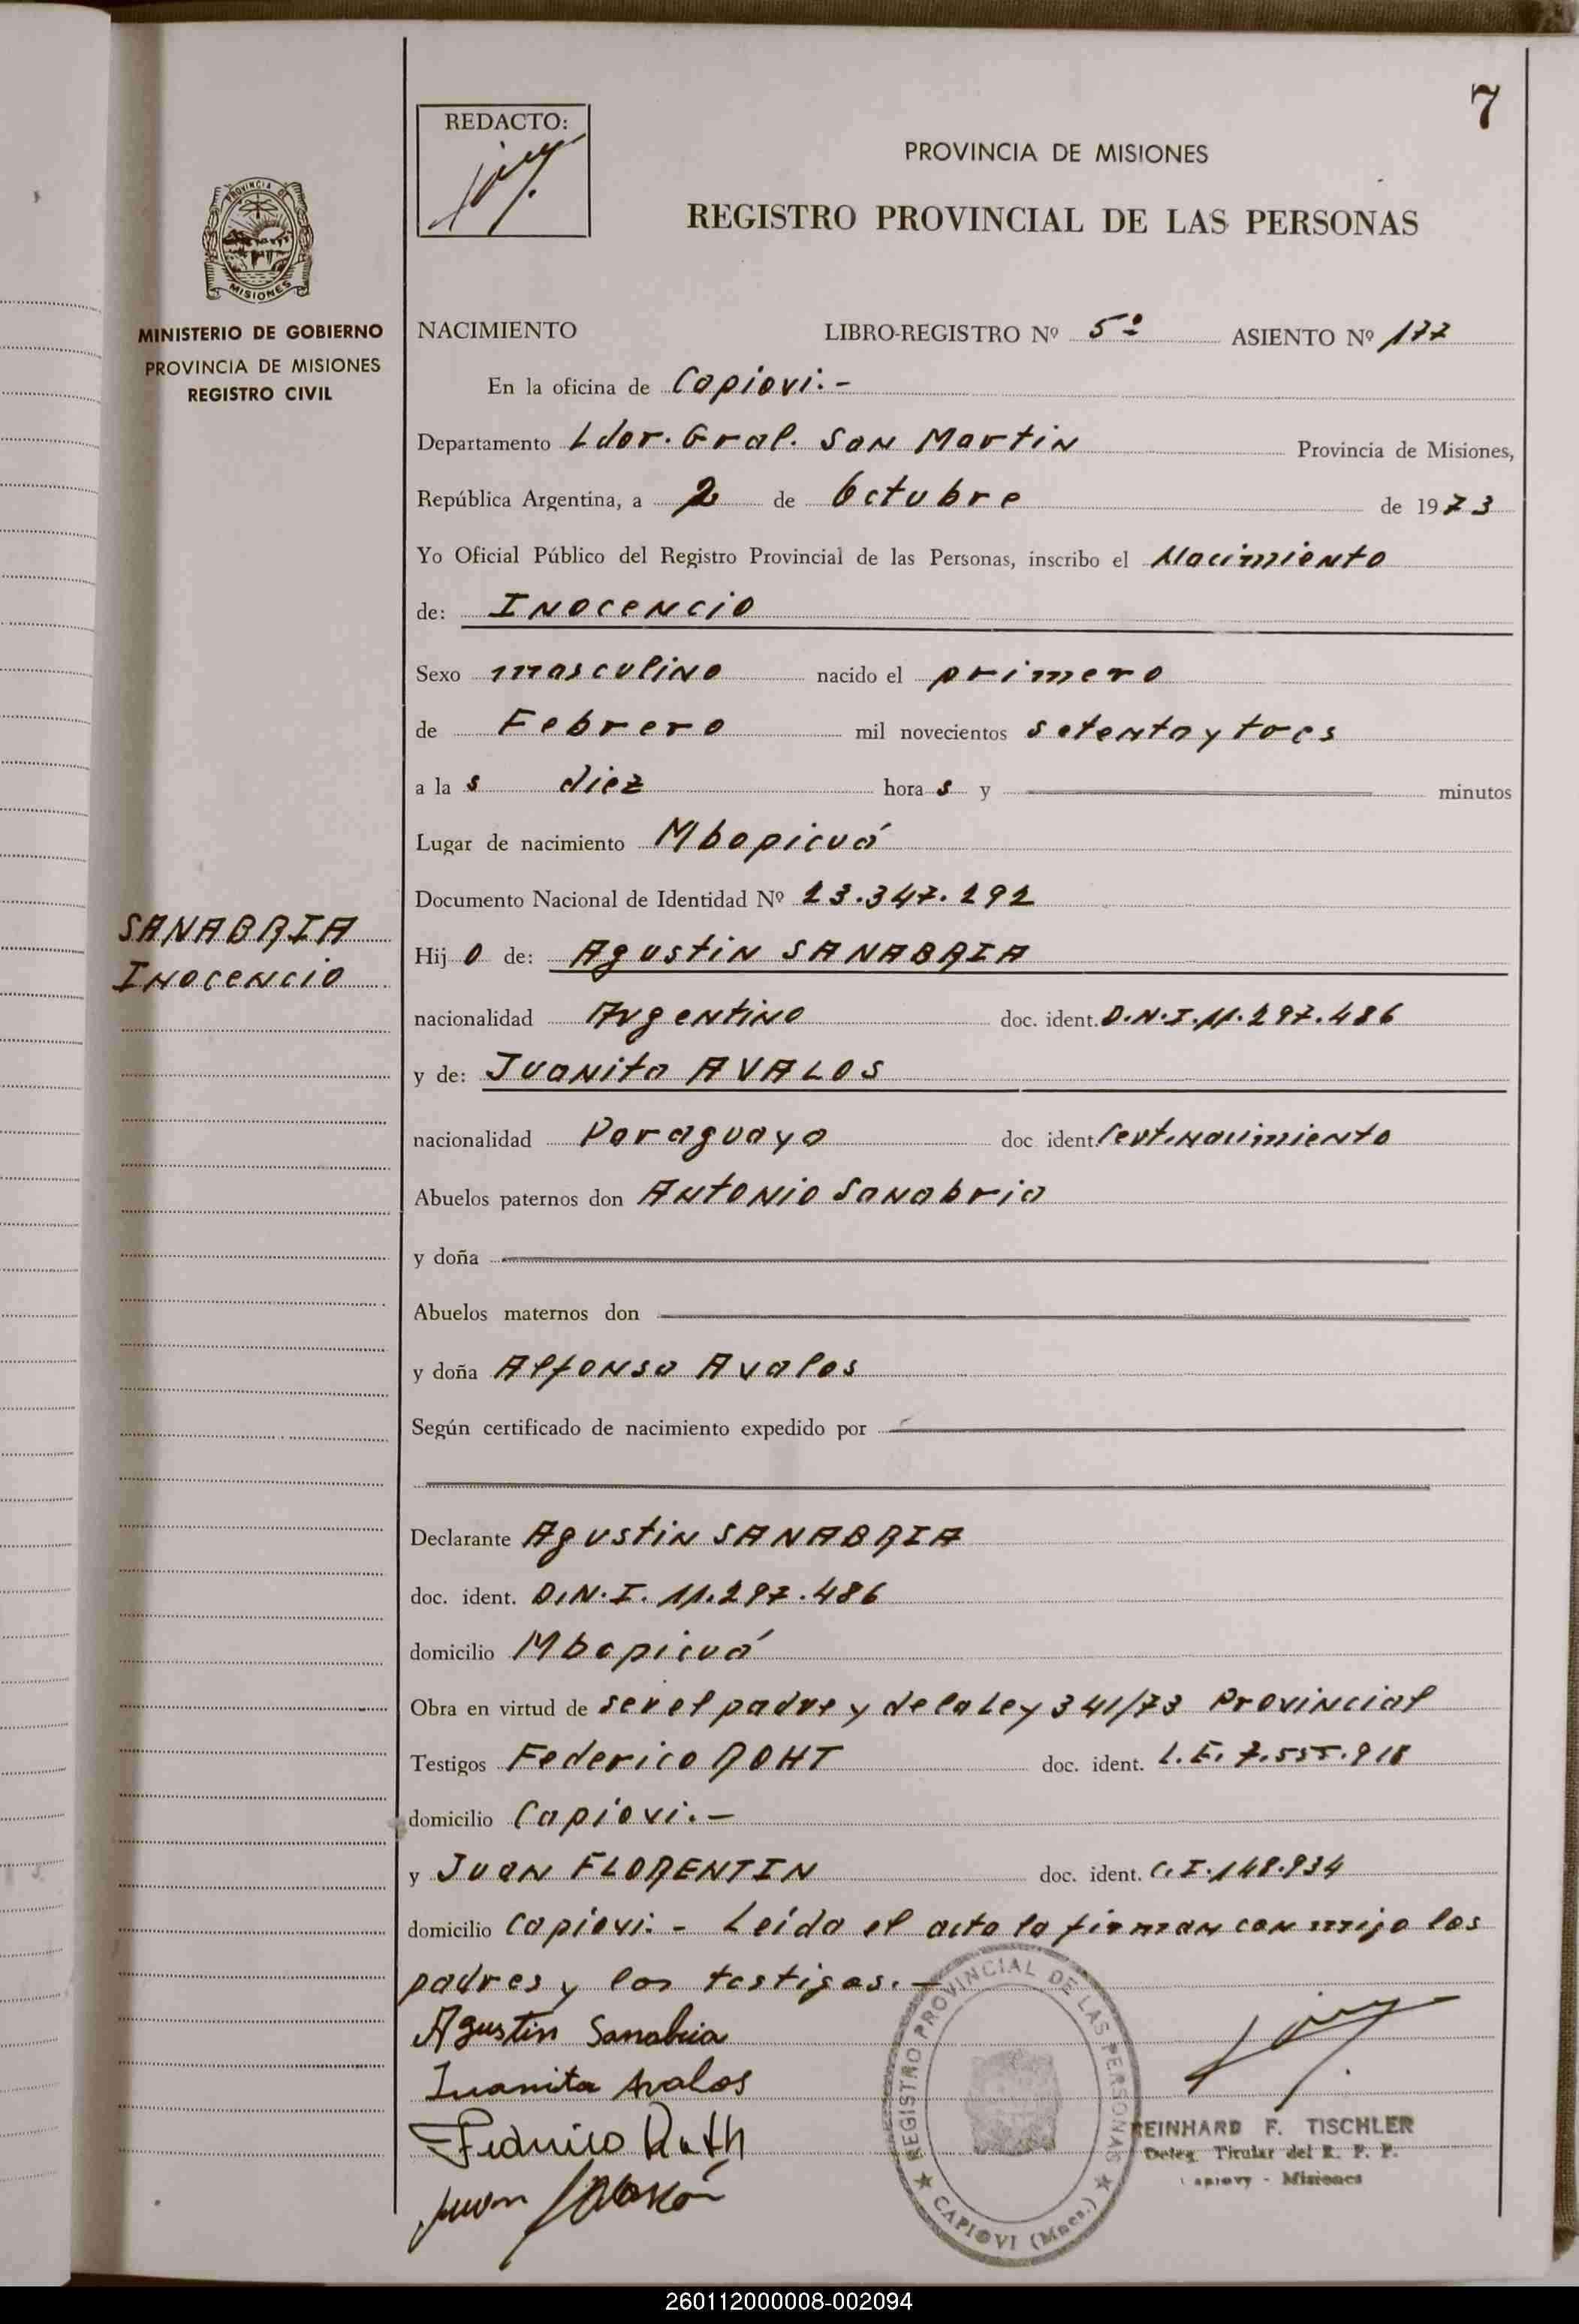 7
REDACTO:
PROVINCIA DE MISIONES
REGISTRO PROVINCIAL DE LAS PERSONAS
PROVINCIA DE
MISIONES
MINISTERIO DE GOBIERNO
PROVINCIA DE MISIONES
REGISTRO CIVIL
NACIMIENTO LIBRO-REGISTRO Nº 5º ASIENTO Nº 177
En la oficina de Capiovi.-
Departamento Ldor. Gral. San Martin Provincia de Misiones,
República Argentina, a 2 de Octubre de 1973
Yo Oficial Público del Registro Provincial de las Personas, inscribo el Nacimiento
de: Inocencio
Sexo masculino nacido el primero
de Febrero mil novecientos setenta y tres
a la s diez hora s y minutos
Lugar de nacimiento Mbopicuá
Documento Nacional de Identidad Nº 23.347.292
SANABRIA
Inocencio
Hij o de: Agustin SANABRIA
nacionalidad Argentina doc. ident. D.N.I. 11.297.486
y de: Juanita AVALOS
nacionalidad Paraguaya doc ident. Cert. nacimiento
Abuelos paternos don Antonio Sanabria
y doña
Abuelos maternos don
y doña Alfonsa Avalos
Según certificado de nacimiento expedido por
Declarante Agustin SANABRIA
doc. ident. D.N.I. 11.297.486
domicilio Mbopicuá
Obra en virtud de ser el padre y de la Ley 341/73 Provincial
Testigos Federico ROHT doc. ident. L.E. 7.555.918
domicilio Capiovi.-
y Juan FLORENTIN doc. ident. C.I. 148.934
domicilio Capiovi.- Leida el acta la firman conmigo los
padres y los testigos.-
Agustin Sanabria
Juanita Avalos
Federico Roth
Juan
REGISTRO PROVINCIAL DE LAS PERSONAS
CAPIOVI (Mnes.)
REINHARD F. TISCHLER
Deleg. Titular del R. P. P.
Capiovy - Misiones
260112000008-002094